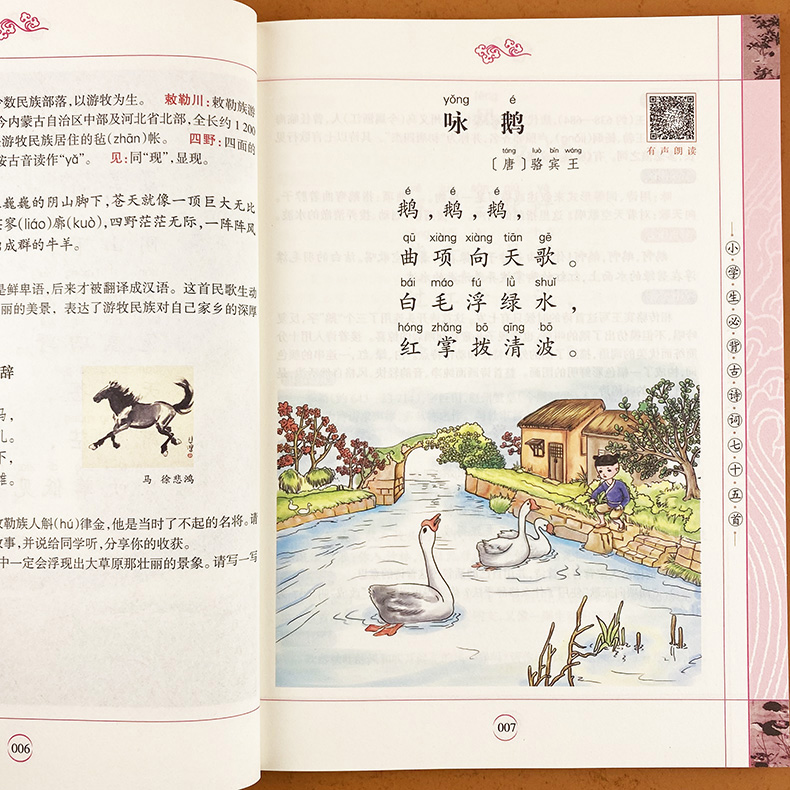 数民族部落,以游牧为生。 敕勒川:敕勒族游
今内蒙古自治区中部及河北省北部,全长约1 200
游牧民族居住的毡(zhān)帐。 四野:四面的
按古音读作“yǎ”。 见:同“现”,显现。
巍巍的阴山脚下,苍天就像一顶巨大无比
寥(liáo)廓(kuò),四野茫茫无际,一阵阵风
成群的牛羊。
是鲜卑语,后来才被翻译成汉语。这首民歌生动
丽的美景,表达了游牧民族对自己家乡的深厚
辞
马,
儿。
下,
雄。
马 徐悲鸿
敕勒族人斛(hú)律金,他是当时了不起的名将。请
故事,并说给同学听,分享你的收获。
中一定会浮现出大草原那壮丽的景象。请写一写
006
yǒng é
咏 鹅
有声朗读
táng luò bīn wáng
〔唐〕骆宾王
é é é
鹅,鹅,鹅,
qū xiàng xiàng tiān gē
曲项向天歌。
bái máo fú lǜ shuǐ
白毛浮绿水,
hóng zhǎng bō qīng bō
红掌拨清波。
小·学·生·必·背·古·诗·词·七·十·五·首
007